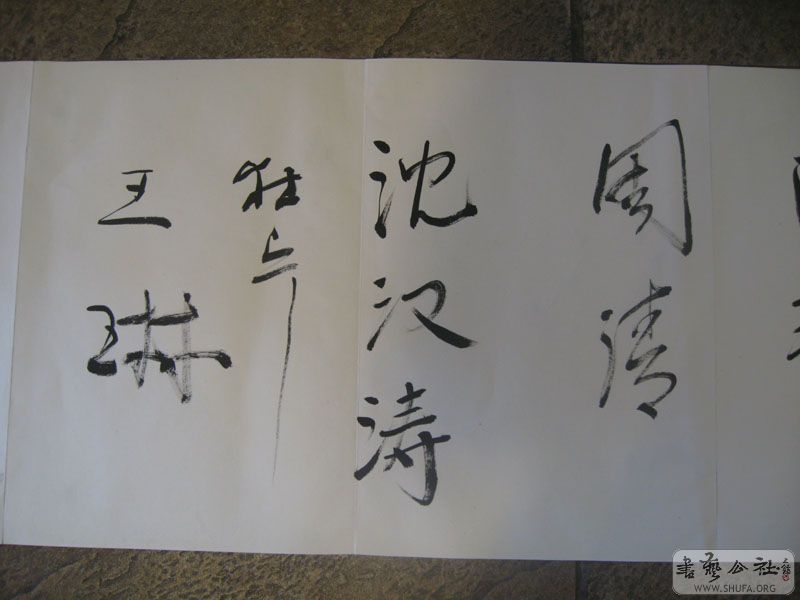 周清
沈汉涛
王琳
書藝公社
WWW.SHUFA.ORG